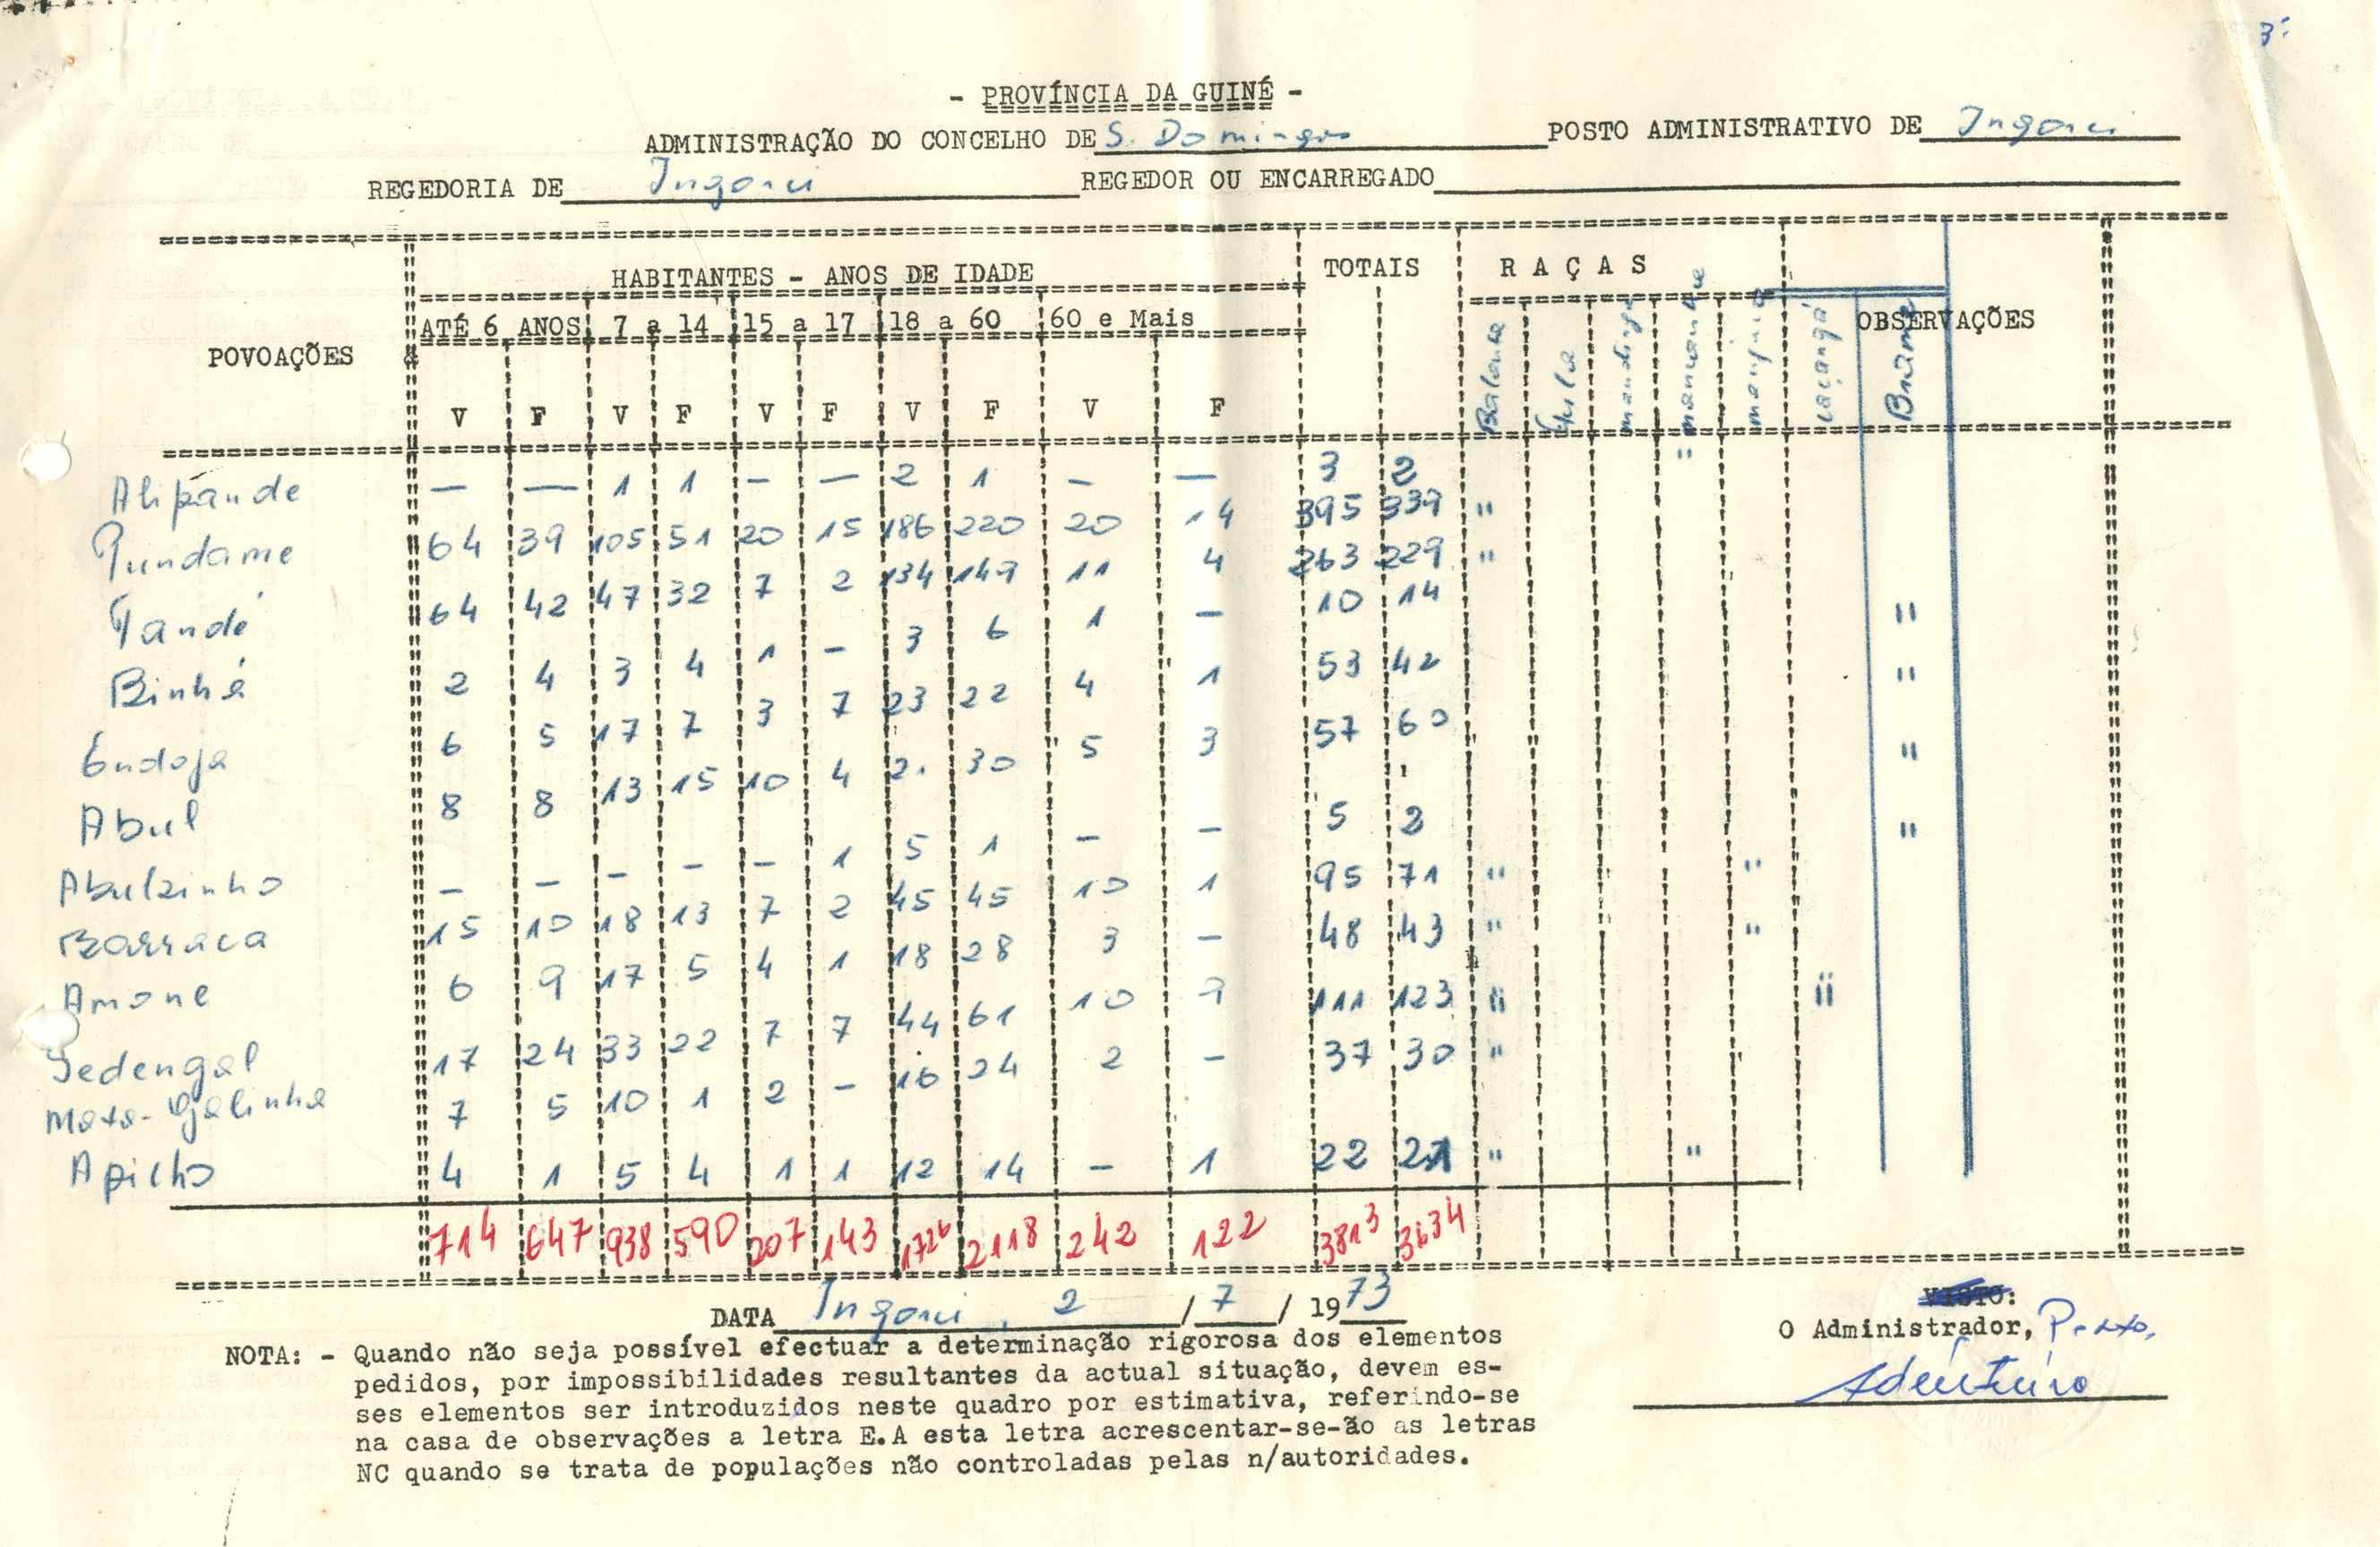 3ª
- PROVÍNCIA DA GUINÉ -
ADMINISTRAÇÃO DO CONCELHO DE S. Domingos POSTO ADMINISTRATIVO DE Ingoré
REGEDORIA DE Ingoré REGEDOR OU ENCARREGADO
POVOAÇÕES HABITANTES - ANOS DE IDADE TOTAIS RAÇAS OBSERVAÇÕES
ATÉ 6 ANOS 7 a 14 15 a 17 18 a 60 60 e Mais
V F V F V F V F V F Balanta Fula mandinga mancanha manjaco caçanga Brame
Alipande — — 1 1 — — 2 1 — — 3 2
Pundame 64 39 105 51 20 15 186 220 20 14 395 339 "
Tandé 64 42 47 32 7 2 134 149 11 4 263 229 "
Binhé 2 4 3 4 1 — 3 6 1 — 10 14 "
Endoja 6 5 17 7 3 7 23 22 4 1 53 42 "
Abul 8 8 13 15 10 4 30 5 3 57 60 "
Abulzinho — — — — — 1 5 1 — — 5 2 "
Barraca 15 10 18 13 7 2 45 45 10 1 95 71 " "
Amone 6 9 17 5 4 1 18 28 3 — 48 43 " "
Sedengal 17 24 33 22 7 7 44 61 10 9 111 123 " "
Mata-Galinha 7 5 10 1 2 — 16 24 2 — 37 30 "
Apilho 4 1 5 4 1 1 12 14 — 1 22 21 " "
714 647 938 590 207 143 1726 2118 242 122 3813 3634
DATA Ingoré, 2 / 7 / 1973
VISTO:
O Administrador, Posto,
NOTA: - Quando não seja possível efectuar a determinação rigorosa dos elementos
pedidos, por impossibilidades resultantes da actual situação, devem es-
ses elementos ser introduzidos neste quadro por estimativa, referindo-se
na casa de observações a letra E.A esta letra acrescentar-se-ão as letras
NC quando se trata de populações não controladas pelas n/autoridades.